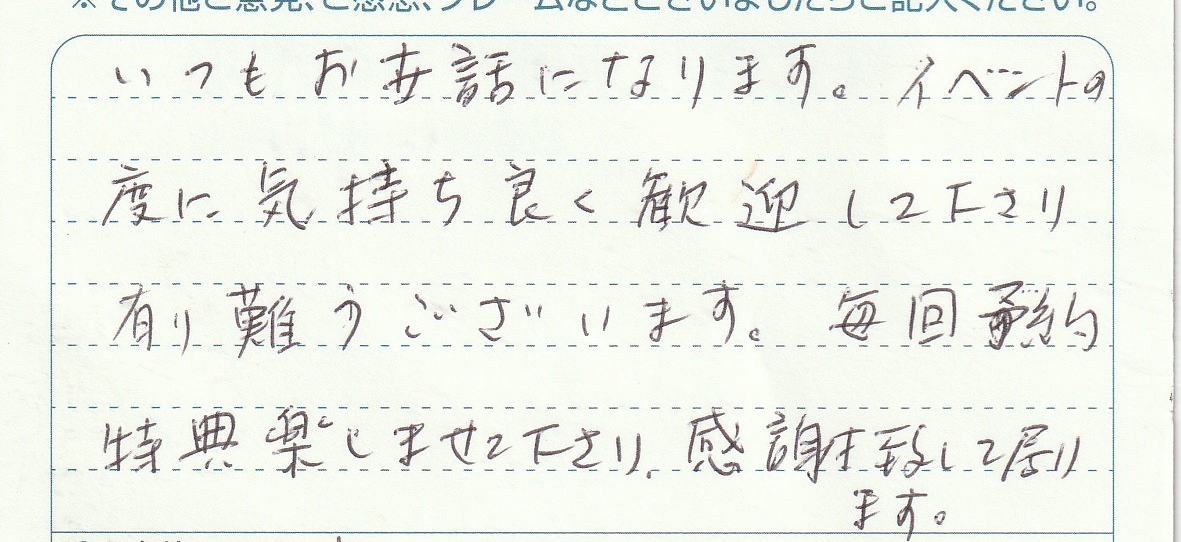 ※その他ご意見、ご感想、クレームなどございましたらご記入ください。
いつもお世話になります。イベントの
度に気持ち良く歓迎して下さり
有り難うございます。毎回予約
特典楽しませて下さり、感謝致して居り
ます。